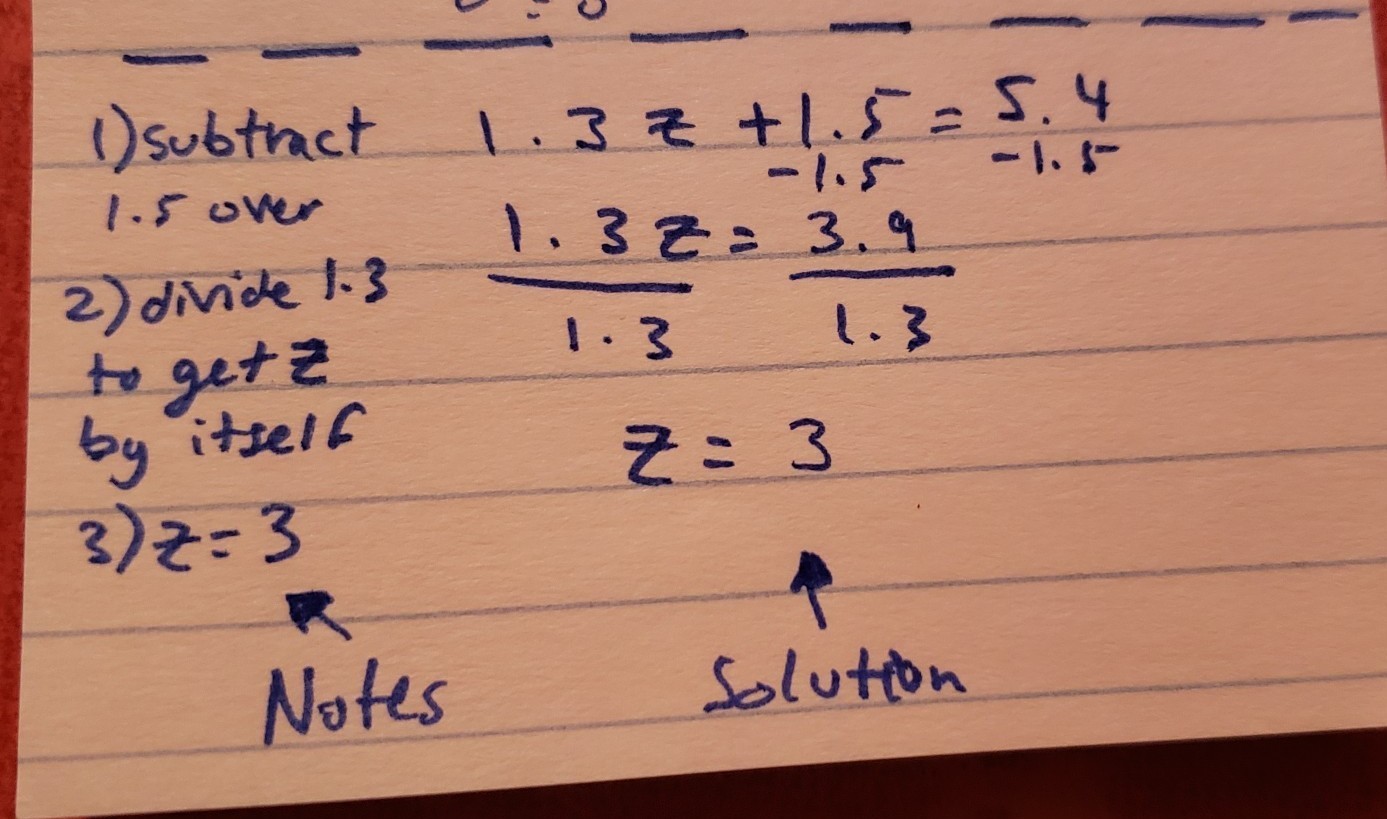 1) subtract
1.5 over
2) divide 1.3
to get z
by itself
3) z = 3
Notes
1.3 z + 1.5 = 5.4
-1.5 -1.5
1.3 z = 3.9
1.3 1.3
z = 3
Solution